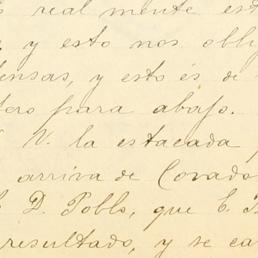 real mente est
y esto nos obli
ensas, y esto és de
para abajo.
V. la estacada
arriva de Covado
D. Poblo, que E.
resultado, y se ca